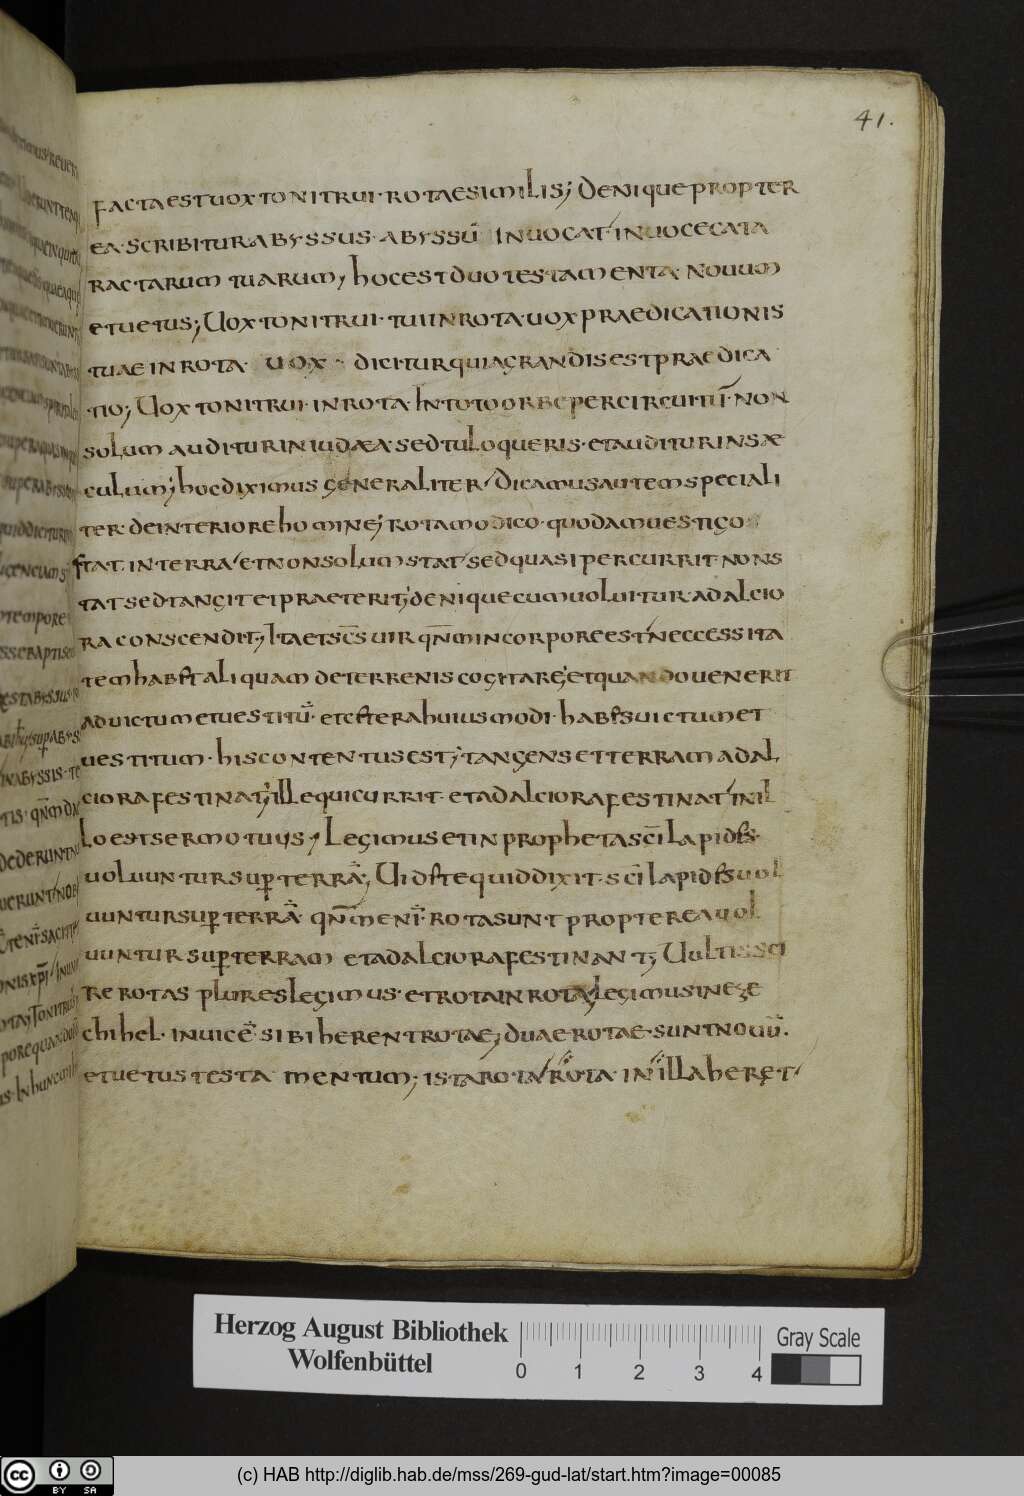 41.
facta est uox tonitrui · rotae similis; Denique propter
ea · scribitur abyssus · abyssū inuocat / in uoce cata
ractarum tuarum, hoc est duo testamenta · nouum
et uetus; Uox tonitrui · tui in rota · uox praedicationis
tuae in rota · uox · dicitur quia grandis est praedica
tio; Uox tonitrui · in rota · In toto orbe per circuitū · non
solum auditur in iudæa · sed tu loqueris · et auditur in sæ
culum; hoc diximus generaliter / Dicamus autem speciali
ter · de interiore homine; rota modico · quodam uestigo
stat in terra / et non solum stat / sed quasi percurrit · non s
tat sed tangit et praeterit; denique cum uoluitur · ad alcio
ra conscendit; Ita et sc̄s uir qn̄m in corpore est / neccessita
tem habet aliquam de terrenis cogitare; et quando uenerit
ad uictum et uestitū · et cetera huius modi · habens uictum et
uestitum · his contentus est; tangens et terram ad al
ciora festinat; ille qui currit · et ad alciora festinat / in il
lo est sermo tuus, Legimus et in prophetas c̄i lapides
uoluuntur sup terrā, Uidete quid dixit · sc̄i lapides uol
uuntur sup terrā · qn̄m enī · rota sunt propterea uol
uuntur sup terram et ad alciora festinant; Uultis sci
re rotas plures legimus · et rota in rota, legimus in eze
chihel · inuicē · sibi herent rotae; duae rotae · sunt nouū ·
et uetus testamentum; ista rota / rota in illa heret ·
Herzog August Bibliothek
Wolfenbüttel
0 1 2 3 4
Gray Scale
cc BY SA
(c) HAB http://diglib.hab.de/mss/269-gud-lat/start.htm?image=00085